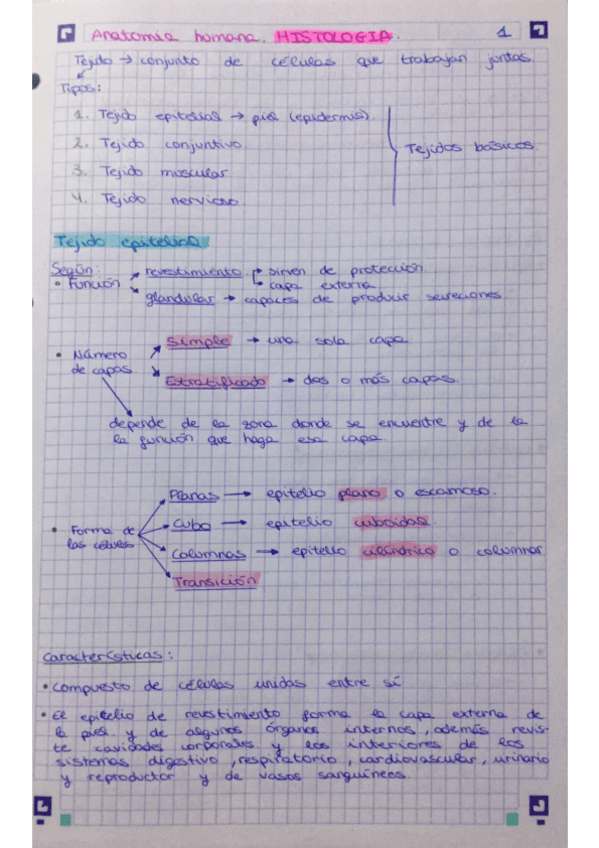 Anatomia humana. HISTOLOGIA. 1
Tejido → conjunto de células que trabajan juntas.
Tipos:
1. Tejido epitelial → piel (epidermis).
2. Tejido conjuntivo.
3. Tejido muscular
4. Tejido nervioso.
Tejidos básicos
Tejido epitelial
Según:
• Función
revestimiento
sirven de protección
capa externa
glandular → capaces de producir secreciones.
• Número de capas
Simple → una sola capa
Estratificado → dos o más capas.
depende de la zona donde se encuentre y de la
la función que haga esa capa.
• Forma de las células
Planas → epitelio plano o escamoso.
Cubo → epitelio cuboidal.
Columnas → epitelio cilíndrico o columnar
Transición
Características:
• Compuesto de células unidas entre sí
• El epitelio de revestimiento forma la capa externa de
la piel y de algunos órganos internos, además revis-
te cavidades corporales y los interiores de los
sistemas digestivo, respiratorio, cardiovascular, urinario
y reproductor y de vasos sanguíneos.